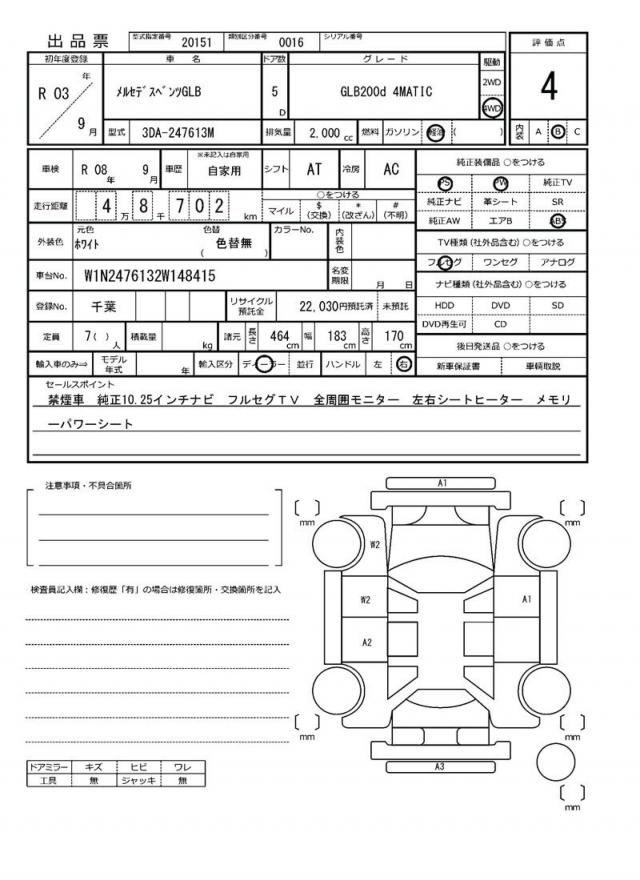 出品票 型式指定番号 20151 類別区分番号 0016 シリアル番号
評価点
初年度登録 車名 ドア数 グレード 駆動
R 03 年 9 月 メルセデスベンツGLB 5 D GLB200d 4MATIC 2WD 4WD 4
型式 3DA-247613M 排気量 2,000 cc 燃料 ガソリン 軽油 ( ) 内装 A B C
車検 R 08 年 9 月 車歴 ※未記入は自家用 自家用 シフト AT 冷房 AC
走行距離 4 万 8 千 7 0 2 km ○をつける マイル $ (交換) * (改ざん) # (不明)
外装色 元色 ホワイト 色替 ( 色替無 ) カラーNo. 内装色
車台No. W1N2476132W148415 名変期限 月 日
登録No. 千葉 リサイクル預託金 22,030円預託済 未預託
定員 7( ) 人 積載量 kg 諸元 長さ 464 cm 幅 183 cm 高さ 170 cm
輸入車のみ⇒ モデル年式 年 輸入区分 ディーラー 並行 ハンドル 左 右
純正装備品 ○をつける
PS PW 純正TV
純正ナビ 革シート SR
純正AW エアB ABS
TV種類(社外品含む) ○をつける
フルセグ ワンセグ アナログ
ナビ種類(社外品含む) ○をつける
HDD DVD SD
DVD再生可 CD
後日発送品 ○をつける
新車保証書 車輌取説
セールスポイント
禁煙車 純正10.25インチナビ フルセグTV 全周囲モニター 左右シートヒーター メモリ
ーパワーシート
注意事項・不具合箇所
検査員記入欄：修復歴「有」の場合は修復箇所・交換箇所を記入
A1
[ ] mm [ ] mm
W2
W2 A1
A2
[ ] mm [ ] mm
A3
[ ] mm
ドアミラー キズ ヒビ ワレ
工具 無 ジャッキ 無